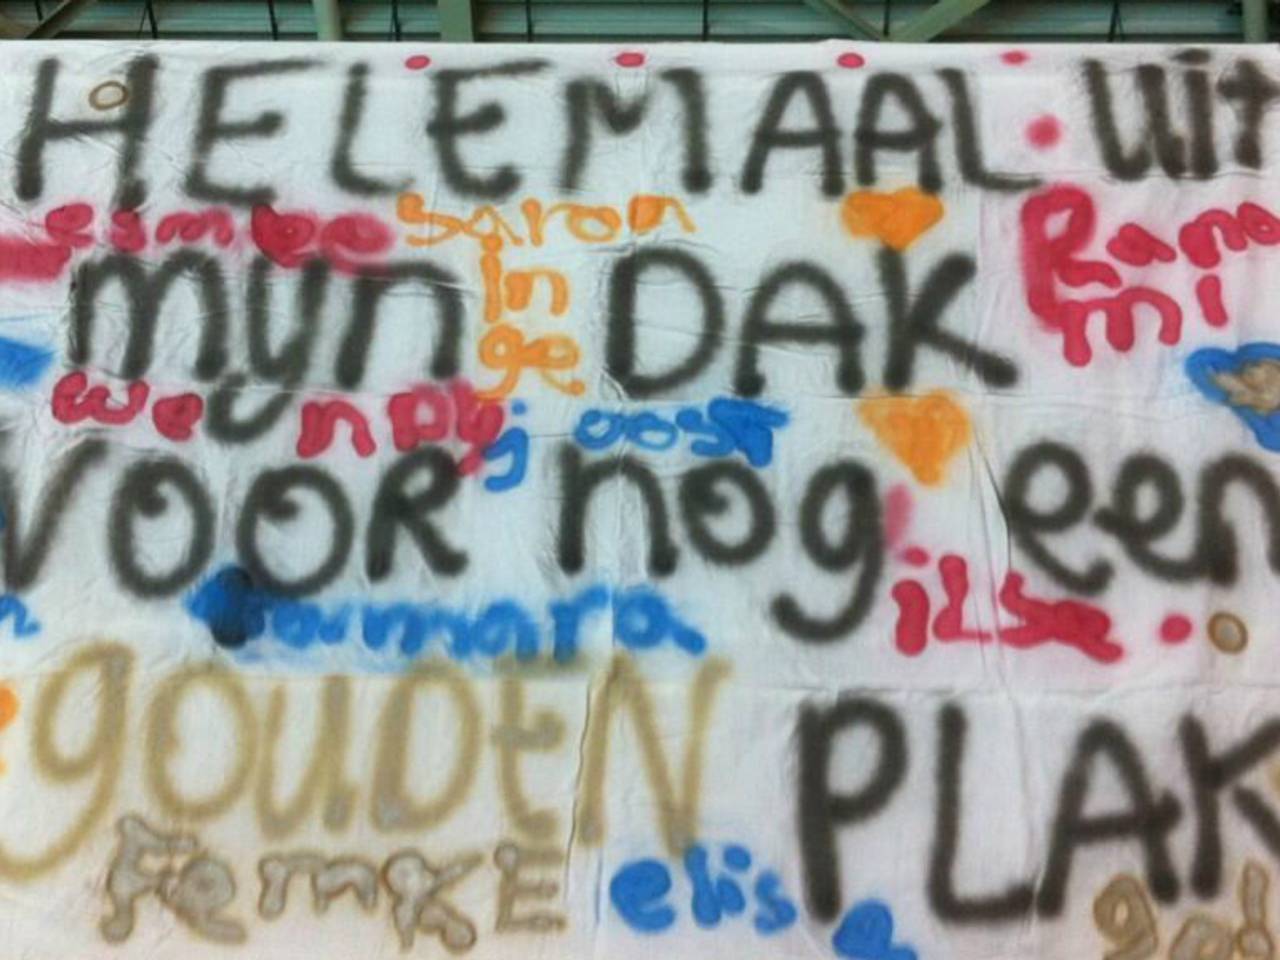 HELEMAAL Uit
esmee Saron Rano
mi
mijn in DAK
ge
wendy joost
VOOR nog een
ilse
tamara
gouDEN PLAK
FemKE elise go!